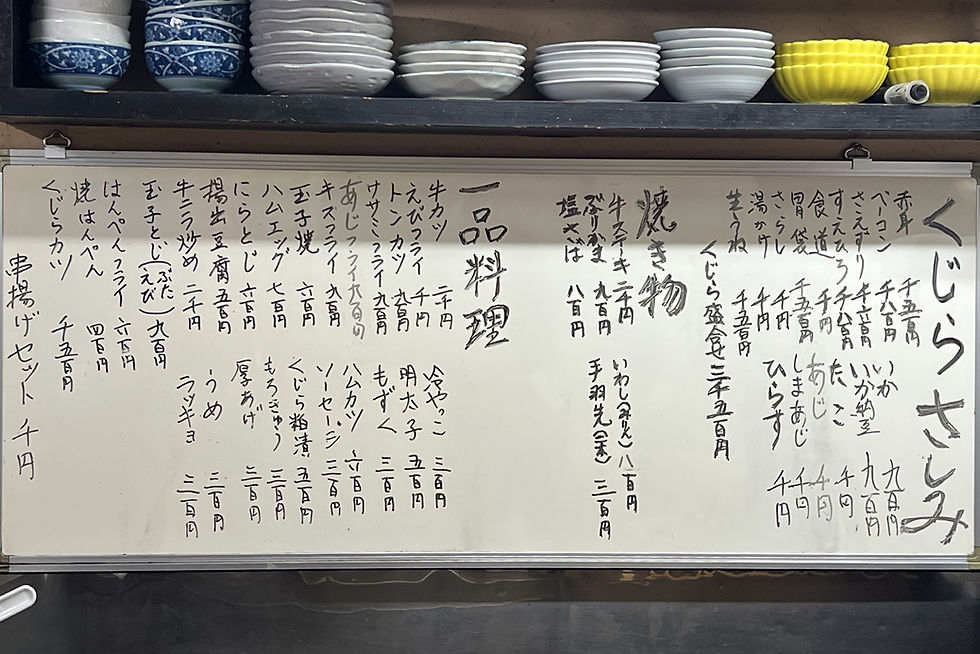 くじら さしみ
赤身 千五百円
ベーコン 千八百円
さえずり 千六百円
すえひろ 千八百円
食道 千円
胃袋 千五百円
さらし 千円
湯かけ 千円
生うね 千五百円
くじら盛合せ 三千五百円
いか 九百円
いか納豆 九百円
たこ 千円
あじ 千円
しまあじ 千円
ひらす 千円
焼き物
牛ステーキ 二千円
ぶりかま 九百円
塩さば 八百円
いわし(みりん) 八百円
手羽先(一本) 三百円
一品料理
牛カツ 二千円
えびフライ 千円
トンカツ 九百円
ササミフライ 九百円
あじフライ 九百円
キスフライ 九百円
玉子焼 六百円
ハムエッグ 七百円
にらとじ 六百円
揚出豆腐 五百円
牛ニラ炒め 二千円
玉子とじ(ぶた えび) 九百円
はんぺんフライ 六百円
焼はんぺん 四百円
くじらカツ 千五百円
冷やっこ 三百円
明太子 五百円
もずく 三百円
ハムカツ 六百円
ソーセージ 三百円
くじら粕漬 五百円
もろきゅう 三百円
厚あげ 三百円
うめ 三百円
ラッキョ 三百円
串揚げセット 千円